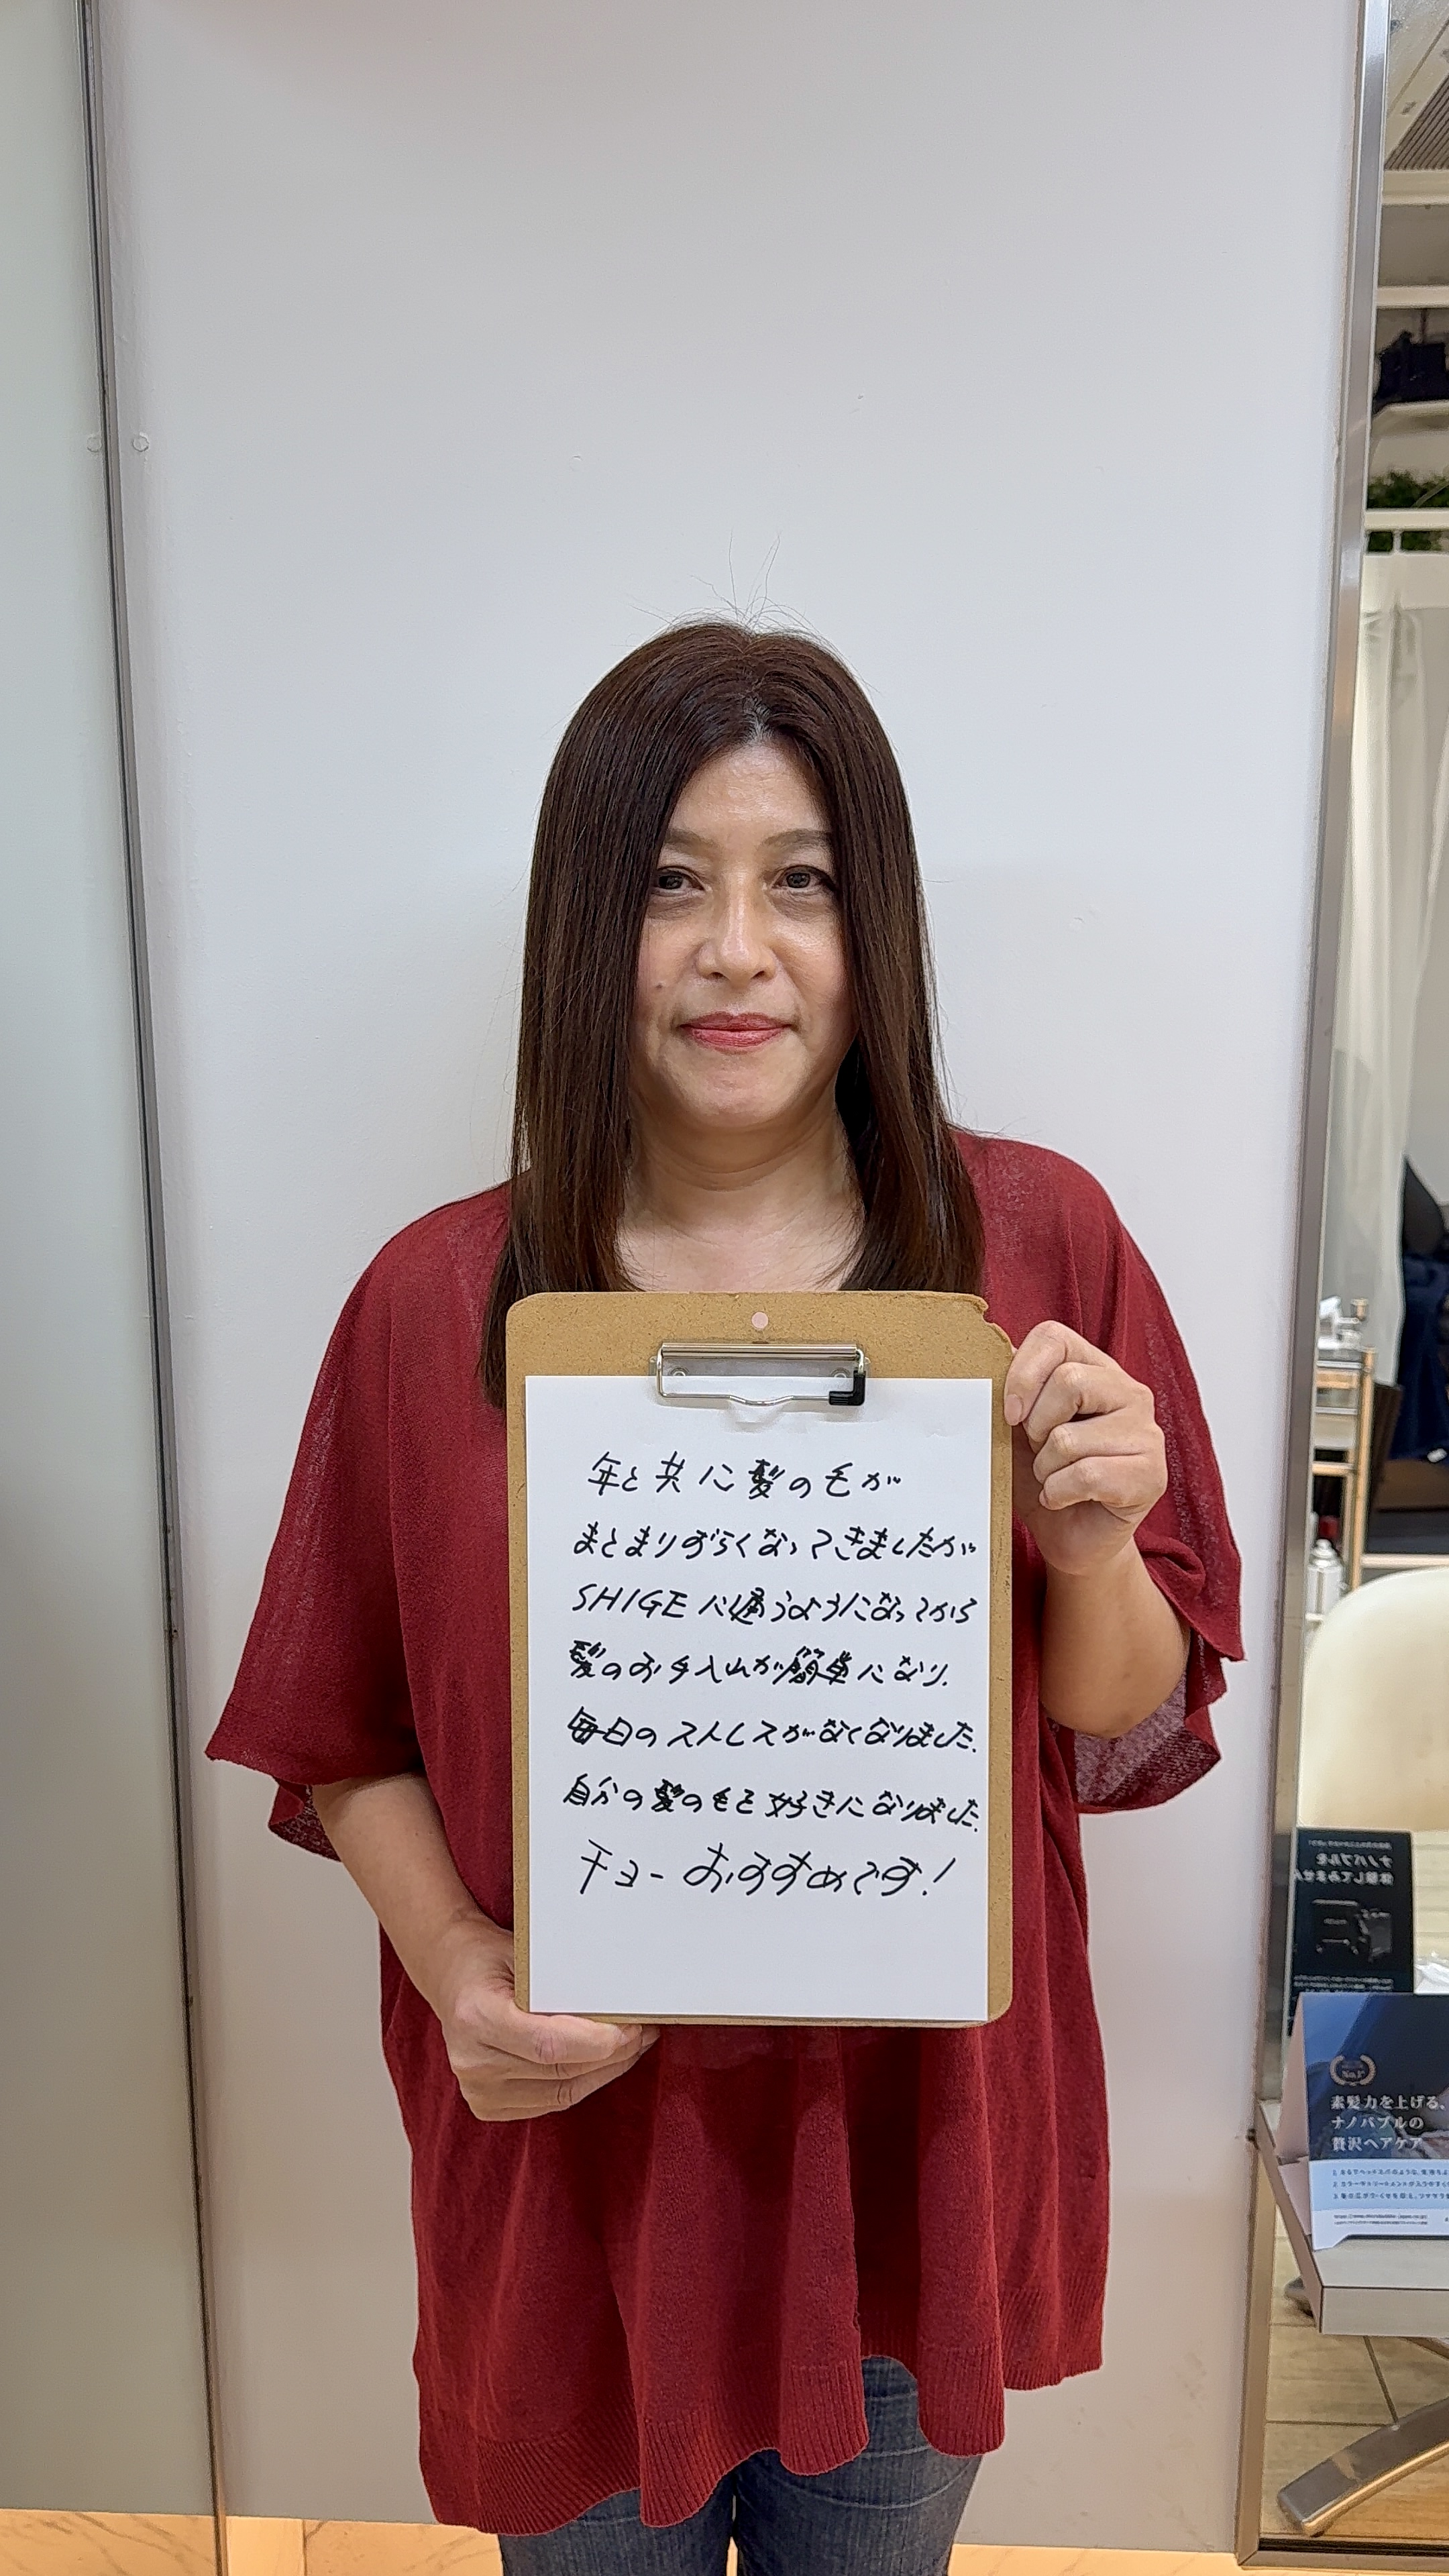 年と共に髪の毛が
まとまりずらくなってきましたが
SHIGEに通うようになってから
髪のお手入れが簡単になり、
毎日のストレスがなくなりました。
自分の髪の毛を好きになりました。
チョーおすすめです!
ナノバブルを
体験してみません
No.1
素髪力を上げる、
ナノバブルの
贅沢ヘアケア